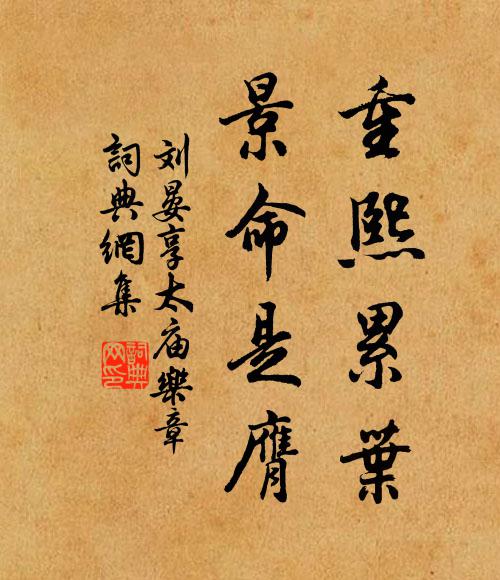 重熙累葉
景命是膺
刘晏享太庙樂章
詞典網集
詞典
网印